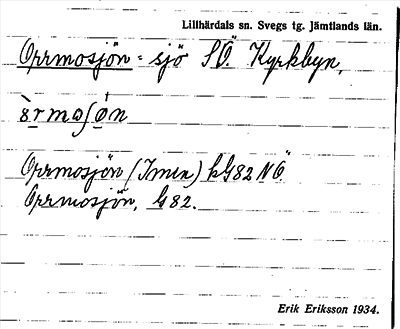 Lillhärdals sn. Svegs tg. Jämtlands län.
Orrmosjön = sjö SÖ. Kyrkbyn,
Orrmosjön (Imen) kG82 NÖ
Orrmosjön, G82.
Erik Eriksson 1934.